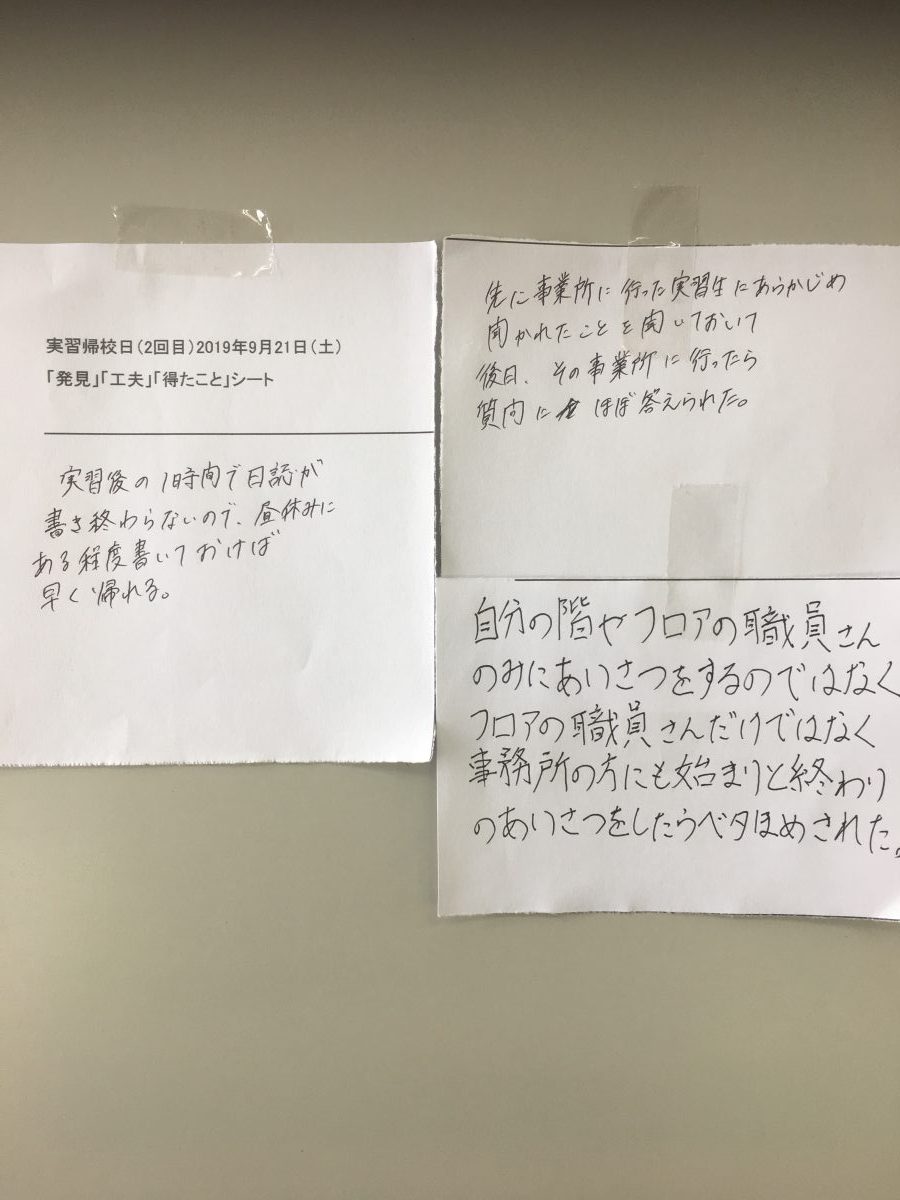 実習帰校日(2回目)2019年9月21日(土)
「発見」「工夫」「得たこと」シート
実習後の1時間で日誌が
書き終わらないので、昼休みに
ある程度書いておけば
早く帰れる。
先に事業所に行った実習生にあらかじめ
聞かれたことを聞いておいて
後日、その事業所に行ったら
質問に ほぼ答えられた。
自分の階やフロアの職員さん
のみにあいさつをするのではなく
フロアの職員さんだけではなく
事務所の方にも始まりと終わり
のあいさつをしたらベタほめされた。